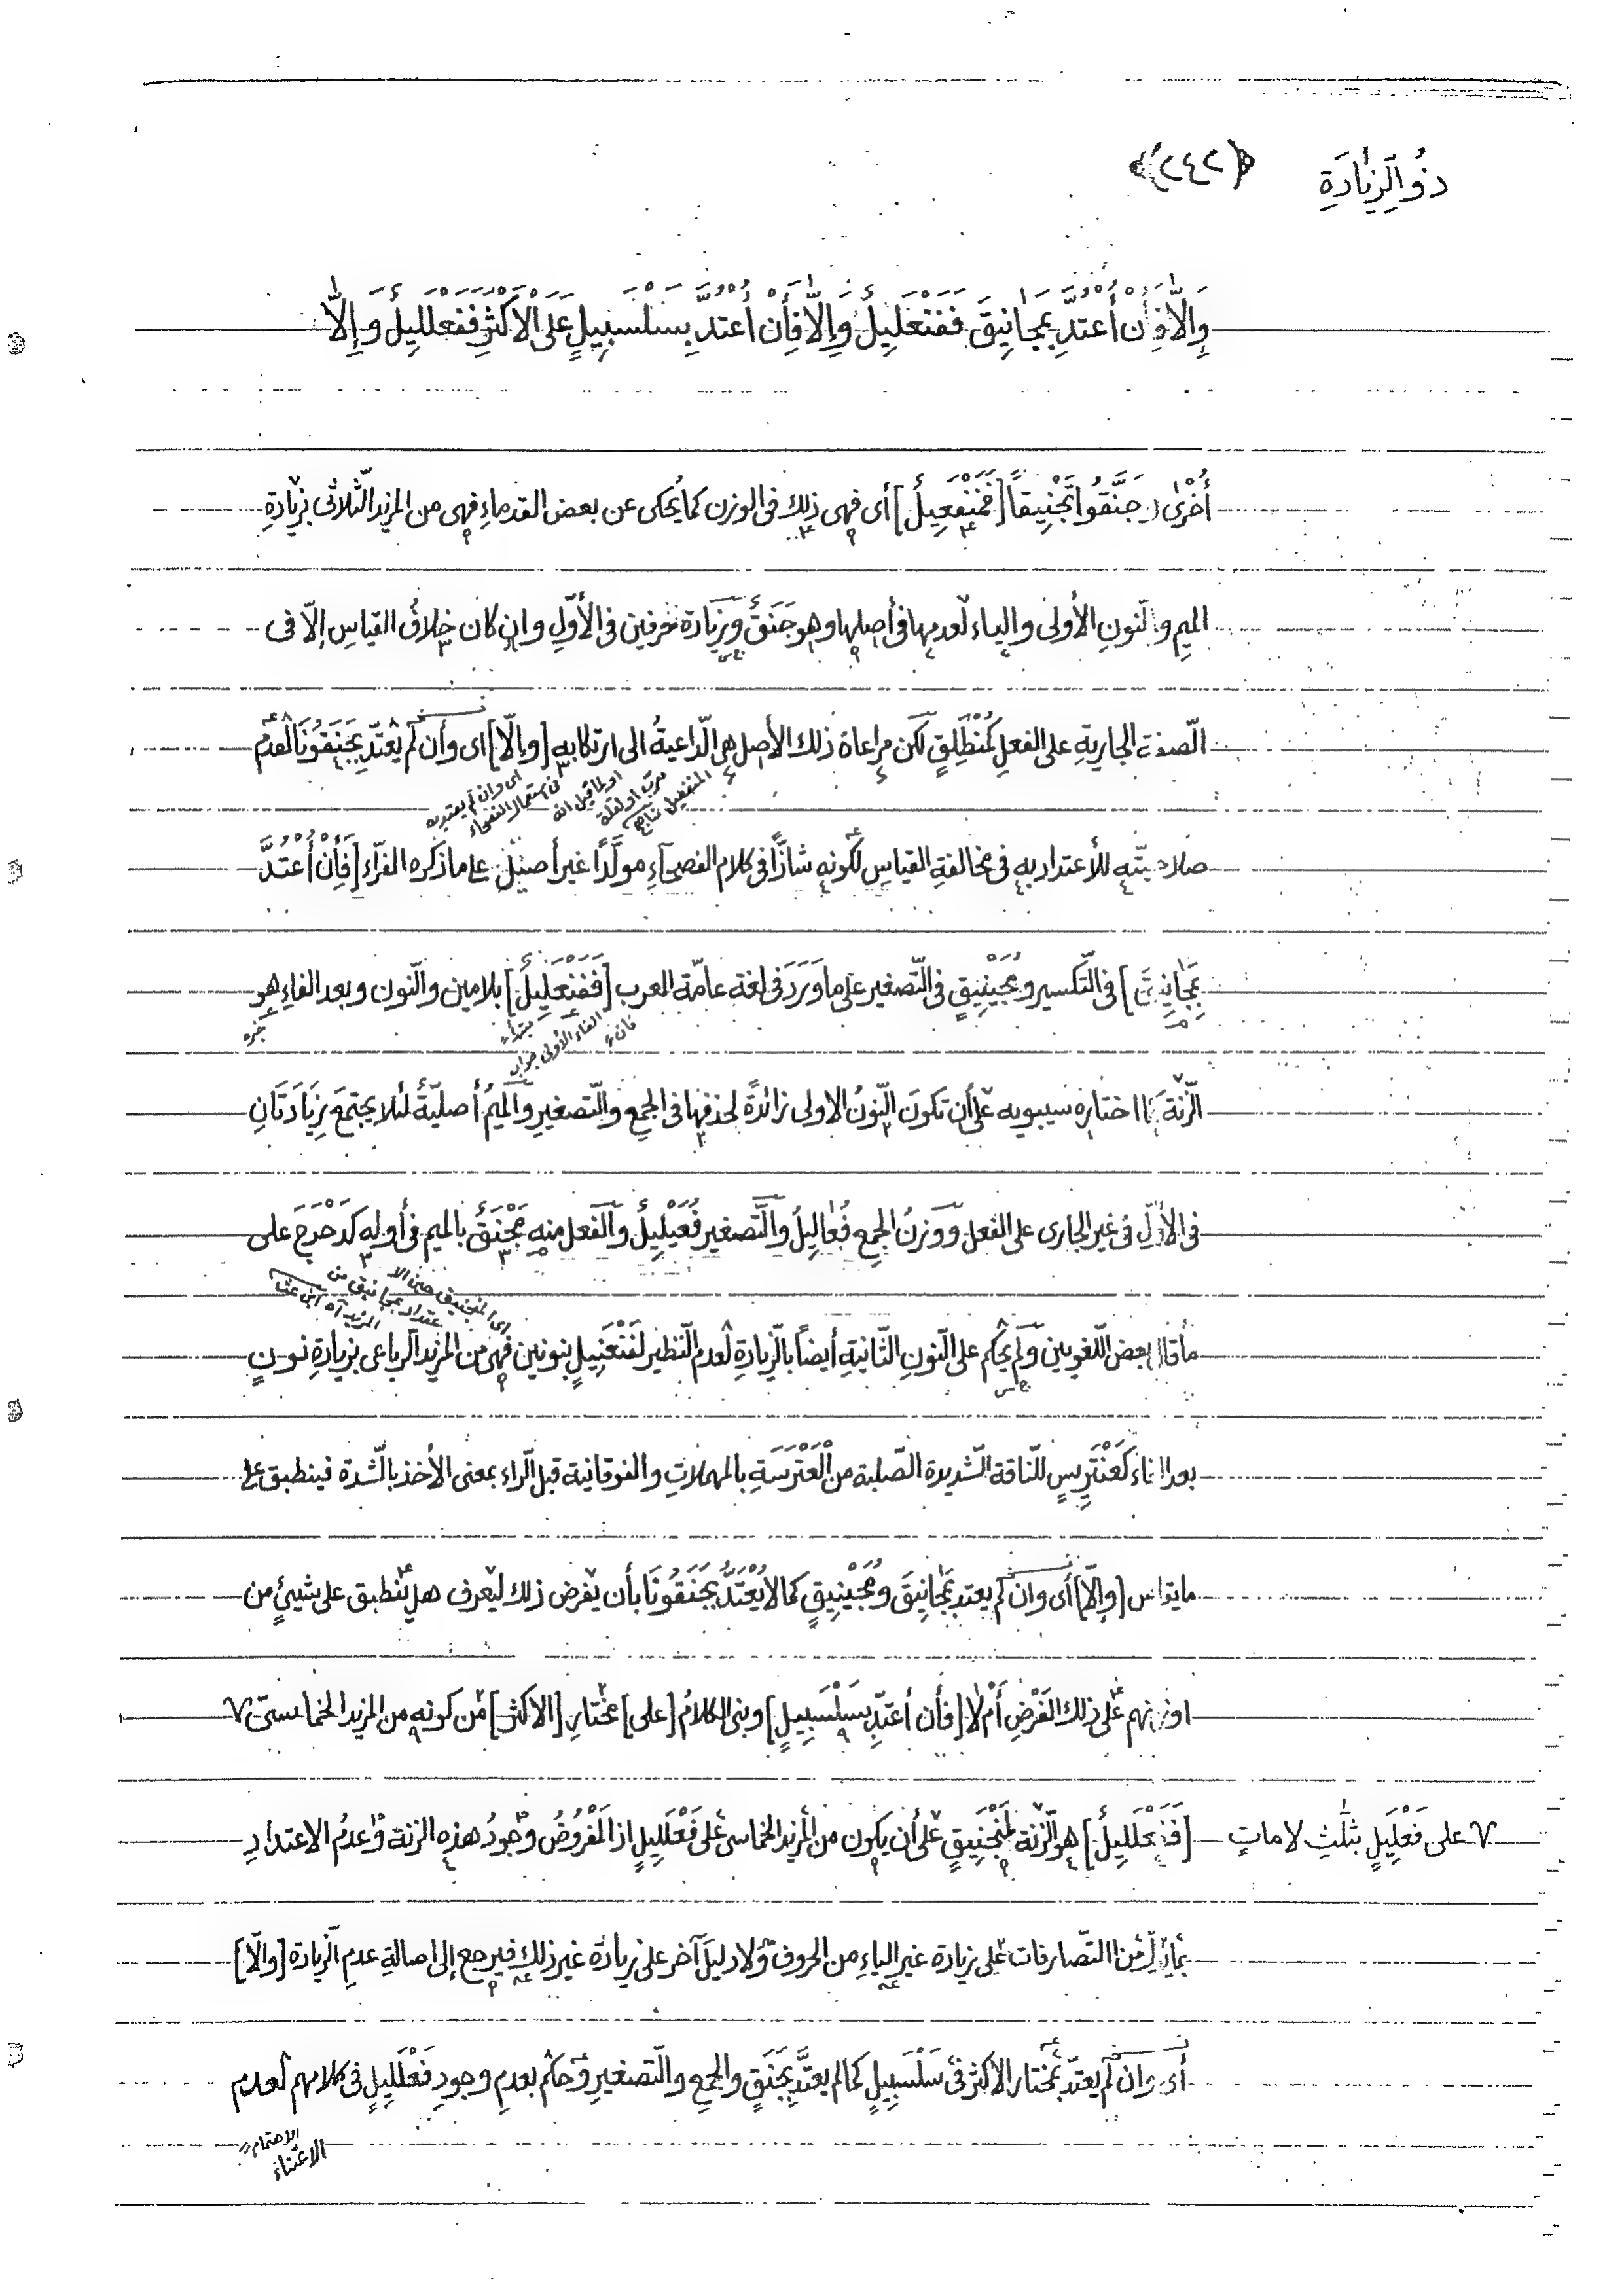 ذُو الزِّيَادَةِ ﴿٢٤٢﴾
وَإِلَّا فَإِنْ أُعْتُدَّ بِمَجَانِيقَ فَفَنْعَلِيلٌ وَإِلَّا فَإِنْ أُعْتُدَّ بِسَلْسَبِيلٍ عَلَى الْأَكْثَرِ فَفَعْلَلِيلٌ وَإِلَّا
أُخْرٰى جَنَّقُوا تَجْنِيقًا [فَمَنْفَعِيلٌ] أى فهى ذلك فى الوزن كما يُحكى عن بعض القدماءِ فهى من المزيد الثّلاثى بزيادةِ
الميمِ والنونِ الأولى والياء لعدمها فى أصلها وهو جَنَقٌ وزيَادة حرفين فى الأوّلِ وان كان خلافُ القياسِ إلّا فى
الصفة الجارية على الفعلِ كمُنْطَلِقٍ لكن مراعاة ذلك الأصل هى الدّاعيةُ الى ارتكابه [وإلّا] اى وأن لم يعتدّ بِجَنَقُونَا لعدم
صلاحيّته للأعتداد به فى مخالفةِ القياسِ لكونه شاذًّا فى كلام الفصحآءِ مولَّدًا غير أصيل على ما ذكره الفرّاء [فَأِنْ أُعْتُدَّ
بِمَجَانِيقَ] فى التّكسير ومُجَيْنِيقٍ فى التّصغير على ما وَرَدَ فى لغة عامّة العرب [فَفَنْعَلِيلٌ] بلامين والنّون وبعد الفاءِ هو
خبره
الزّنة لما اختاره سيبويه على أن تكونَ النّونُ الاولى زائدةً لحذفها فى الجمع والتّصغيرِ والميمُ أصليّةً لئلا يجتمعَ زِيَادَتَانِ
فى الأوّلِ فى غير الجارى على الفعل ووزنُ الجمع فَعَالِيلُ والتّصغير فُعَيْلِيلٌ والفعل منه مَجْنَقَ بالميم فى أوله كدَحْرَجَ على
ما قال بعض اللّغويين ولم يحكم على النّونِ الثّانيةِ أيضاً بالزّيادةِ لعدم النّظير لفَنْعَنِيلٍ بنونين فهى من المزيد الرباعى بزيادةِ نونٍ
بعد الفاء كعَنْتَرِيسٍ للنّاقة الشّديدة الصّلبة من الْعَتْرَسَةِ بالمهملاتِ والفوقانية قبل الرّاء بمعنى الأخذ بالشّدة فينطبق على
[وإلّا] أى وان لم يعتد بِمَجَانِيقَ ومُجَيْنِيقٍ كما لا يُعْتَدُّ بِجَنَقُونَا بأن يفرض ذلك ليعرف هل ينطبق على شيئٍ من
اوزانهم على ذلك الفَرْضِ أَمْ لا [فأن أعتدّ بِسَلْسَبِيلٍ] وبنى الكلامُ [على] مختارِ [الاكثر] من كونه من المزيد الخماسىّ ٧
[فَفَعْلَلِيلٌ] هو الزّنة لمَنْجَنِيقٍ على أن يكون من المزيد الخماسى على فَعْلَلِيلٍ اذ المَفْرُوضُ وجودُ هذه الزنة وعدمُ الاعتدادِ
٧ على فَعْلَلِيلٍ بثلثِ لاماتٍ
بما يدلّ من التّصارفات على زيادة غير الياءِ من الحروف ولا دليلَ آخر على زيادة غير ذلك فيرجع إلى اصالةِ عدمِ الزّيادة [وإلّا]
أى وان لم يعتدّ بمختار الأكثر فى سَلْسَبِيلٍ كما لم يعتدَّ بِجَنَقٍ والجمعِ والتّصغيرِ وحكم بعدمِ وجودِ فَعْلَلِيلٍ فى كلامهم لعدم
الاهتمام
الاعتناء